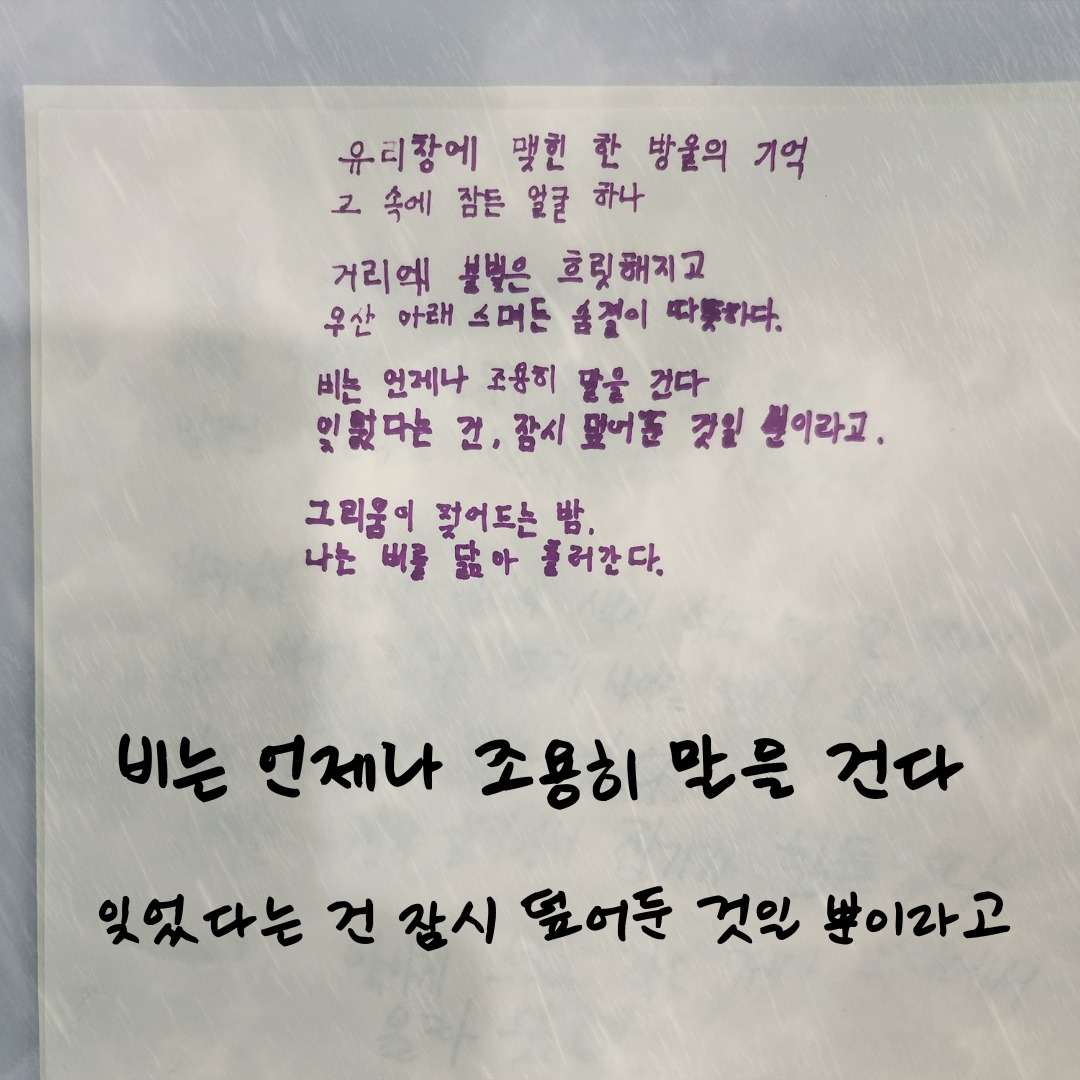 유리창에 맺힌 한 방울의 기억
그 속에 잠든 얼굴 하나
거리에 불빛은 흐릿해지고
우산 아래 스며든 숨결이 따뜻하다.
비는 언제나 조용히 말을 건다
잊었다는 건, 잠시 덮어둔 것일 뿐이라고.
그리움이 젖어드는 밤.
나는 비를 닮아 흘러간다.
비는 언제나 조용히 말을 건다
잊었다는 건 잠시 덮어둔 것일 뿐이라고